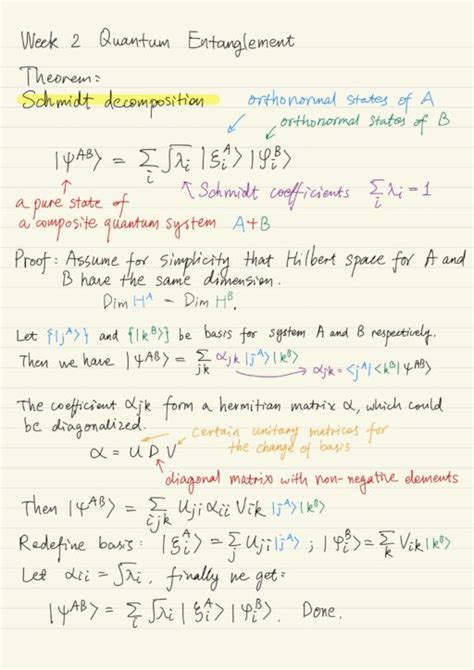 Week 2 Quantum Entanglement
Theorem:
Schmidt decomposition
orthonormal states of A
orthonormal states of B
|ψ^AB⟩ = Σ_i √λi |ξ_i^A⟩ |φ_i^B⟩
Schmidt coefficients Σ_i λi = 1
a pure state of
a composite quantum system A+B
Proof: Assume for simplicity that Hilbert space for A and
B have the same dimension.
Dim H^A = Dim H^B.
Let {|j^A⟩} and {|k^B⟩} be basis for system A and B respectively.
Then we have |ψ^AB⟩ = Σ_jk αjk |j^A⟩|k^B⟩ → αjk = <j^A|<k^B|ψ^AB⟩
The coefficient αjk form a hermitian matrix α, which could
be diagonalized.
certain unitary matrices for
the change of basis
α = U D V
diagonal matrix with non-negative elements
Then |ψ^AB⟩ = Σ_ijk Uji αii Vik |j^A⟩|k^B⟩
Redefine basis: |ξ_i^A⟩ = Σ_j Uji|j^A⟩ ; |φ_i^B⟩ = Σ_k Vik|k^B⟩
Let αii = √λi, finally we get:
|ψ^AB⟩ = Σ_i √λi |ξ_i^A⟩|φ_i^B⟩. Done.